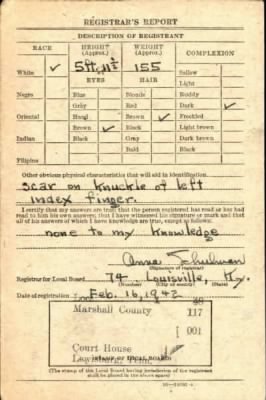 REGISTRAR'S REPORT
DESCRIPTION OF REGISTRANT
RACE HEIGHT (Approx.) WEIGHT (Approx.) COMPLEXION
White ✓ 5 ft. 11½ 155 Sallow
EYES HAIR Light
Ruddy
Negro Blue Blonde Dark ✓
Gray Red Freckled
Oriental Hazel Brown ✓ Light brown
Brown ✓ Black Dark brown
Indian Black Gray Black
Bald
Filipino
Other obvious physical characteristics that will aid in identification
Scar on knuckle of left
index finger.
I certify that my answers are true; that the person registered has read or has had
read to him his own answers; that I have witnessed his signature or mark and that
all of his answers of which I have knowledge are true, except as follows:
none to my knowledge
Anna Schulman
(Signature of registrar)
Registrar for Local Board 74 Louisville, Ky.
(Number) (City or county) (State)
Date of registration Feb. 16, 1942
Marshall County 117
001
Court House
(STAMP OF LOCAL BOARD)
(The stamp of the Local Board having jurisdiction of the registrant
shall be placed in the above space)